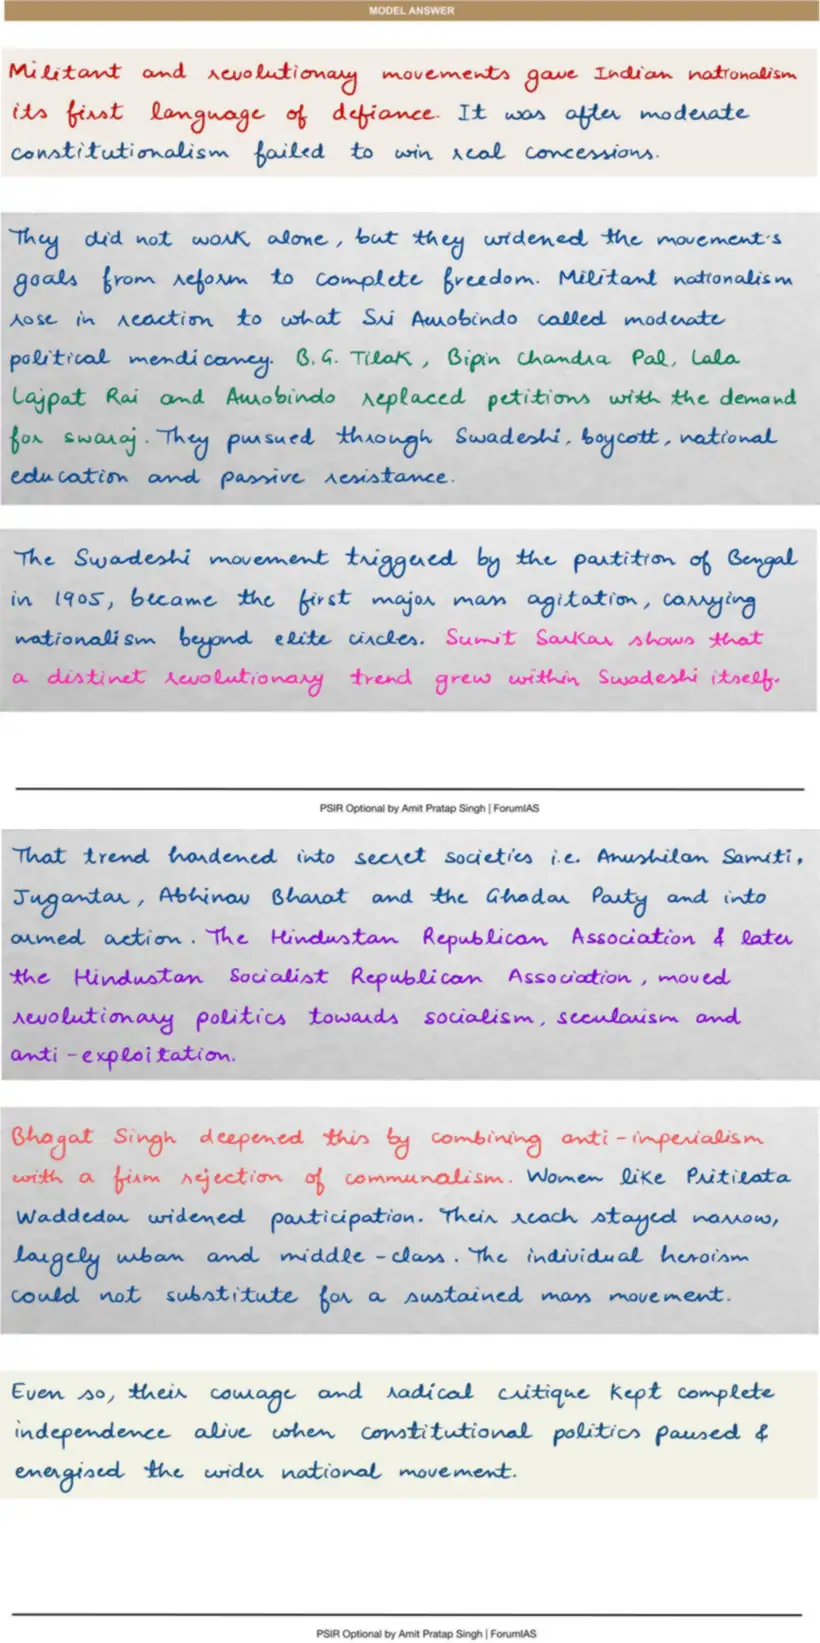 MODEL ANSWER
Militant and revolutionary movements gave Indian nationalism
its first language of defiance. It was after moderate
constitutionalism failed to win real concessions.
They did not work alone, but they widened the movement's
goals from reform to complete freedom. Militant nationalism
rose in reaction to what Sri Aurobindo called moderate
political mendicancy. B.G. Tilak, Bipin Chandra Pal, Lala
Lajpat Rai and Aurobindo replaced petitions with the demand
for swaraj. They pursued through Swadeshi, boycott, national
education and passive resistance.
The Swadeshi movement triggered by the partition of Bengal
in 1905, became the first major mass agitation, carrying
nationalism beyond elite circles. Sumit Sarkar shows that
a distinct revolutionary trend grew within Swadeshi itself.
PSIR Optional by Amit Pratap Singh | ForumIAS
That trend hardened into secret societies i.e. Anushilan Samiti,
Jugantar, Abhinav Bharat and the Ghadar Party and into
armed action. The Hindustan Republican Association & later
the Hindustan Socialist Republican Association, moved
revolutionary politics towards socialism, secularism and
anti-exploitation.
Bhagat Singh deepened this by combining anti-imperialism
with a firm rejection of communalism. Women like Pritilata
Waddedar widened participation. Their reach stayed narrow,
largely urban and middle-class. The individual heroism
could not substitute for a sustained mass movement.
Even so, their courage and radical critique kept complete
independence alive when constitutional politics paused &
energised the wider national movement.
PSIR Optional by Amit Pratap Singh | ForumIAS